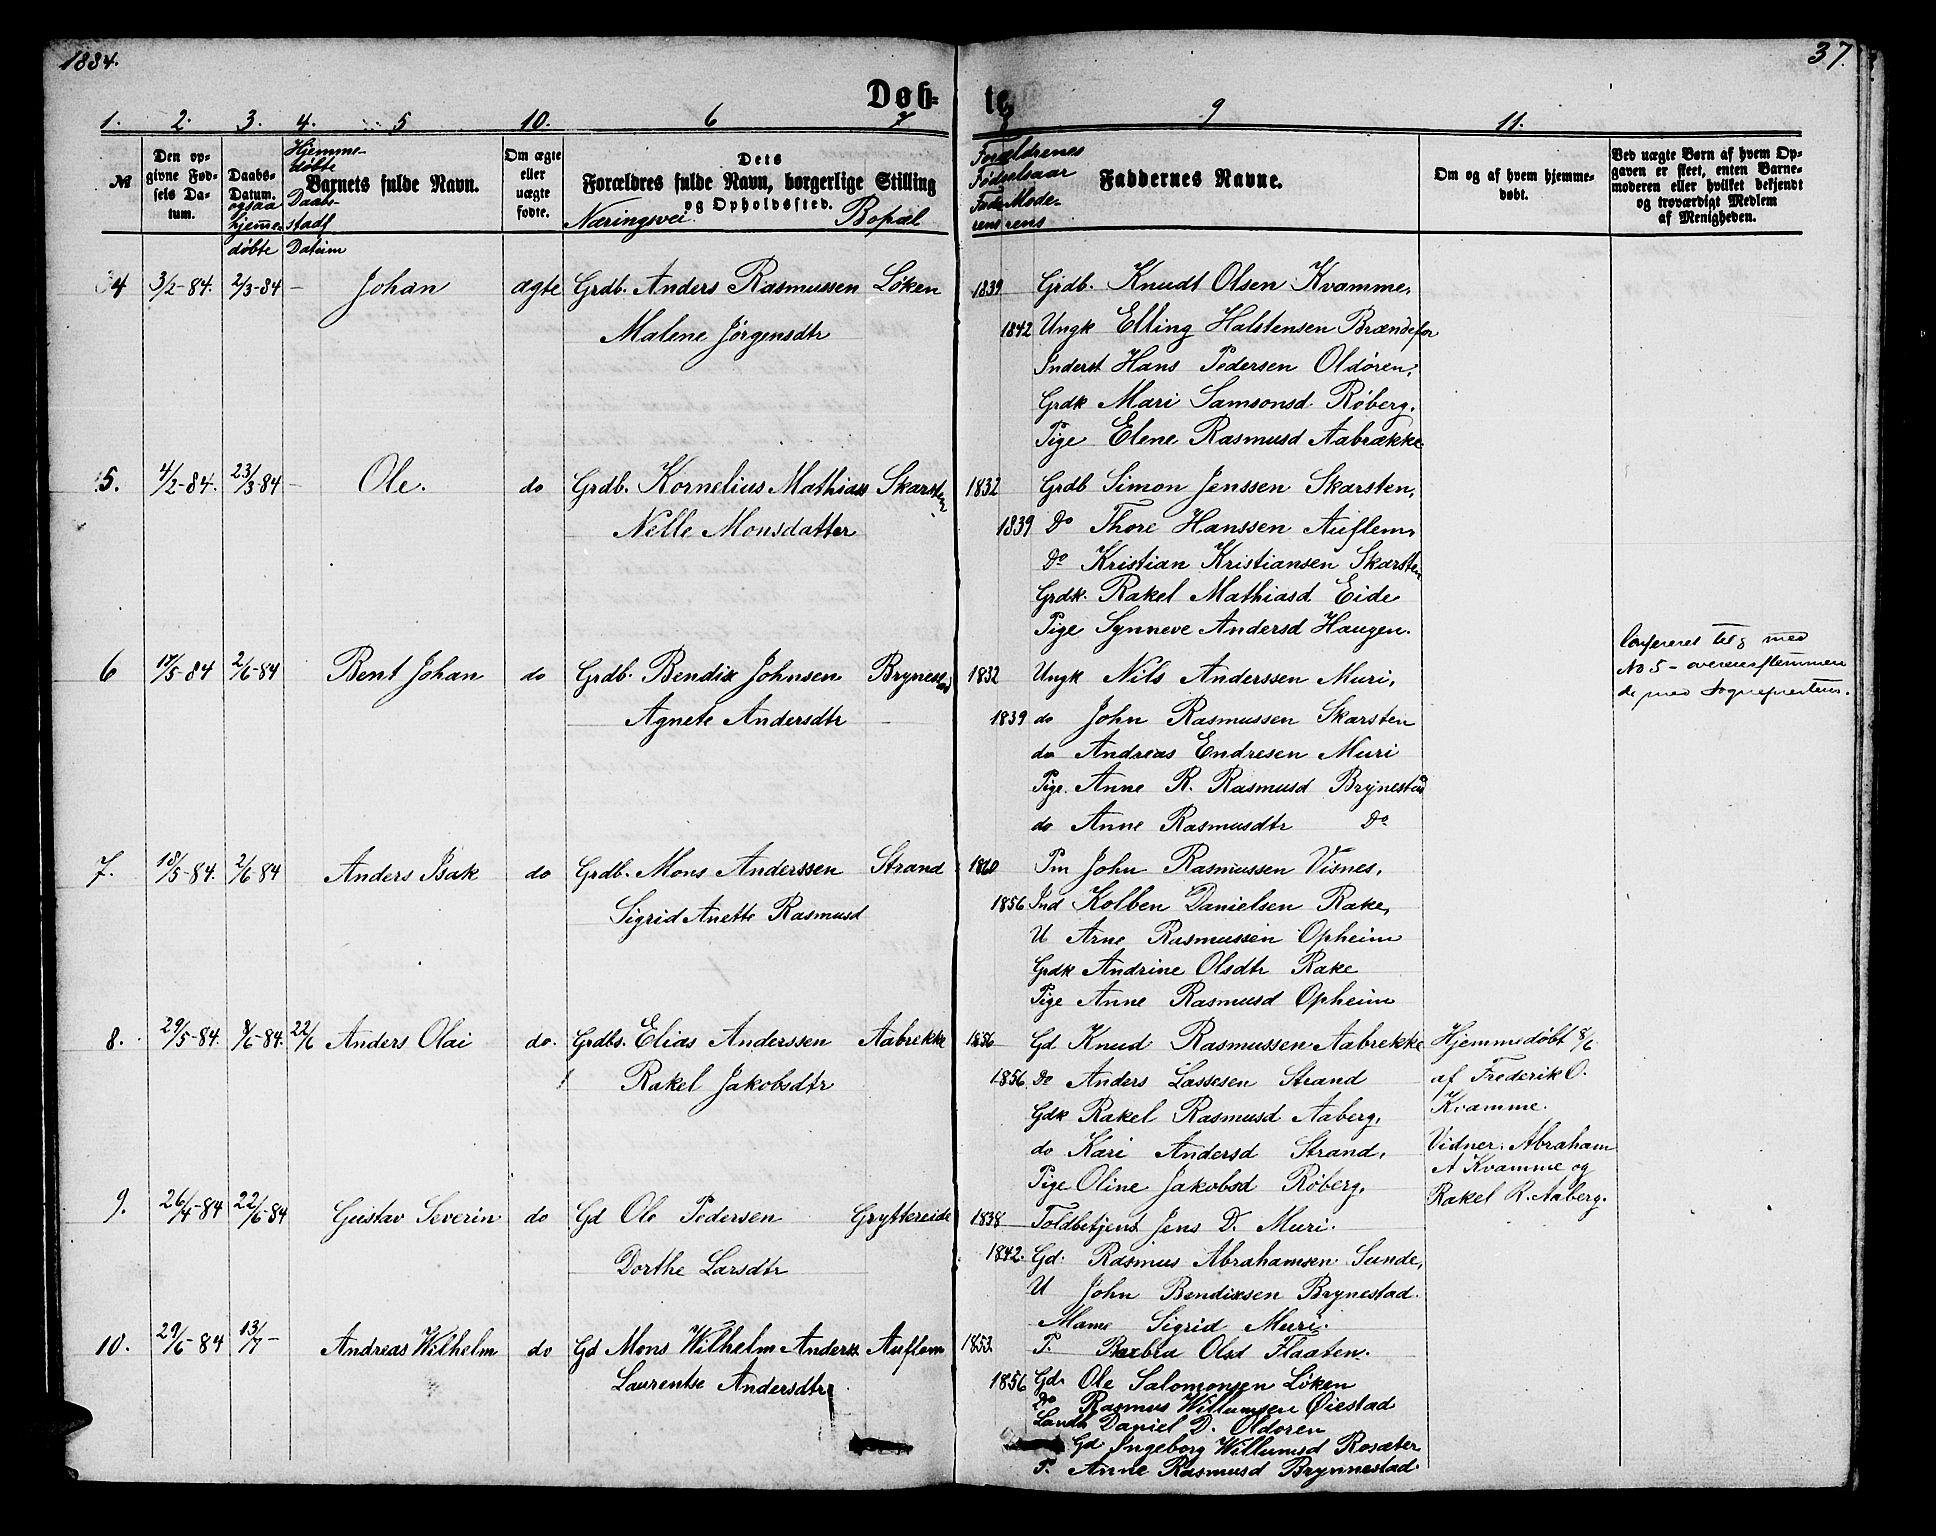 1884.
37.
Døb-
te
1. 2. 3. 4. 5 10. 6 7 8 9 11.
№
Den opgivne Fødsels Datum.
Daabs-Datum.
ogsaa hjemmedøbte
Hjemmedøbte Daabsstadf Datum
Barnets fulde Navn.
Om ægte eller uægte fødte.
Dets Forældres fulde Navn, borgerlige Stilling og Opholdsted.
Næringsvei. Bopæl
Forældrenes Fødselsaar
Faderens Moderens
Faddernes Navne.
Om og af hvem hjemmedøbt.
Ved uægte Børn af hvem Opgaven er skeet, enten Barnemoderen eller hvilket bekjendt og troværdigt Medlem af Menigheden.
4 3/2-84. 2/3-84 — Johan ægte Grdb. Anders Rasmussen Löken 1839 Grdb. Knudt Olsen Kvamme,
Malene Jörgensdtr 1842 Ungk Elling Halstensen Brændefor
Inderst Hans Pedersen Oldören,
Grdk Mari Samsonsd. Röberg,
Pige Elene Rasmusd Aabrække
5. 4/2-84. 23/3-84 — Ole. do Grdb. Kornelius Mathiass Skarsten 1832 Grdb Simon Jenssen Skarsten,
Nelle Monsdatter 1839 Do Thore Hanssen Auflem,
Do Kristian Kristiansen Skarsten
Grdk. Rakel Mathiasd Eide
Pige Synneve Andersd Haugen.
6 17/5-84 2/6-84 Bent Johan do Grdb. Bendix Johnsen Brynestad 1832 Ungk Nils Anderssen Muri,
Agnete Andersdtr 1839 do John Rasmussen Skarsten
do Andreas Endresen Muri
Pige. Anne R. Rasmusd Brynestad
do Anne Rasmusdtr Do
med
No 5 - overensstemmen
de med Sognepresten.
7. 18/5-84. 2/6-84 Anders Isak do Grdb. Mons Anderssen Strand 1860 Pm John Rasmussen Visnes,
Sigrid Anette Rasmusd 1856 Ind Kolben Danielsen Rake,
U Arne Rasmussen Opheim
Grdk Andrine Olsdtr Rake
Pige Anne Rasmusd Opheim
8. 29/5-84. 8/6-84. 22/6 Anders Olai do. Grdbs. Elias Anderssen Aabrekke 1856 Gd Knud Rasmussen Aabrekke Hjemmedöbt 8/6
Rakel Jakobsdtr 1856. Do Anders Lassesen Strand af Frederik O.
Gdk Rakel Rasmusd Aaberg, Kvamme.
do Kari Andersd Strand, Vidner: Abraham
A Kvamme og
Pige Oline Jakobsd Röberg, Rakel R. Aaberg.
9. 26/4-84 22/6-84 Gustav Severin do Gd Ole Pedersen Gryttereide 1838 Toldbetjent Jens D. Muri.
Dorthe Larsdtr 1842. Gd. Rasmus Abrahamsen Sunde,
U John Bendixsen Brynestad.
Mame Sigrid Muri.
10. 29/6-84 13/7- Andreas Wilhelm do Gd Mons Wilhelm Anderss. Auflem 1853 P. Barbra Olsd Flaaten.
Laurentse Andersdtr 1856 Gd. Ole Salomonsen Löken
Do Rasmus Willumsen Öiestad
Landh Daniel D. Oldoren
Gd Ingeborg Willumsd Rosæter
P. Anne Rasmusd Brynnestad.